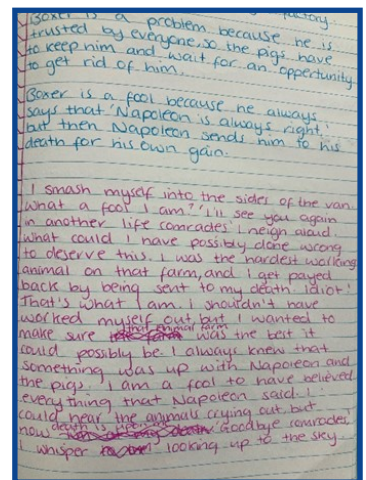 factory.
Boxer is a problem because he is
trusted by everyone, so the pigs have
to keep him and wait for an oppertunity
to get rid of him.
Boxer is a fool because he always
says that 'Napoleon is always right,'
but then Napoleon sends him to his
death for his own gain.
I smash myself into the sides of the van.
What a fool I am? 'I'll see you again
in another life comrades' I neigh aloud.
What could I have possibly done wrong
to deserve this. I was the hardest working
animal on that farm, and I get payed
back by being sent to my death. idiot!
That's what I am. I shouldn't have
worked myself out, but I wanted to
make sure that animal farm was the best it
could possibly be. I always knew that
something was up with Napoleon and
the pigs. I am a fool to have believed
everything that Napoleon said. I
could hear the animals crying out but
now death is upon me. Goodbye comrades
I whisper looking up to the sky.